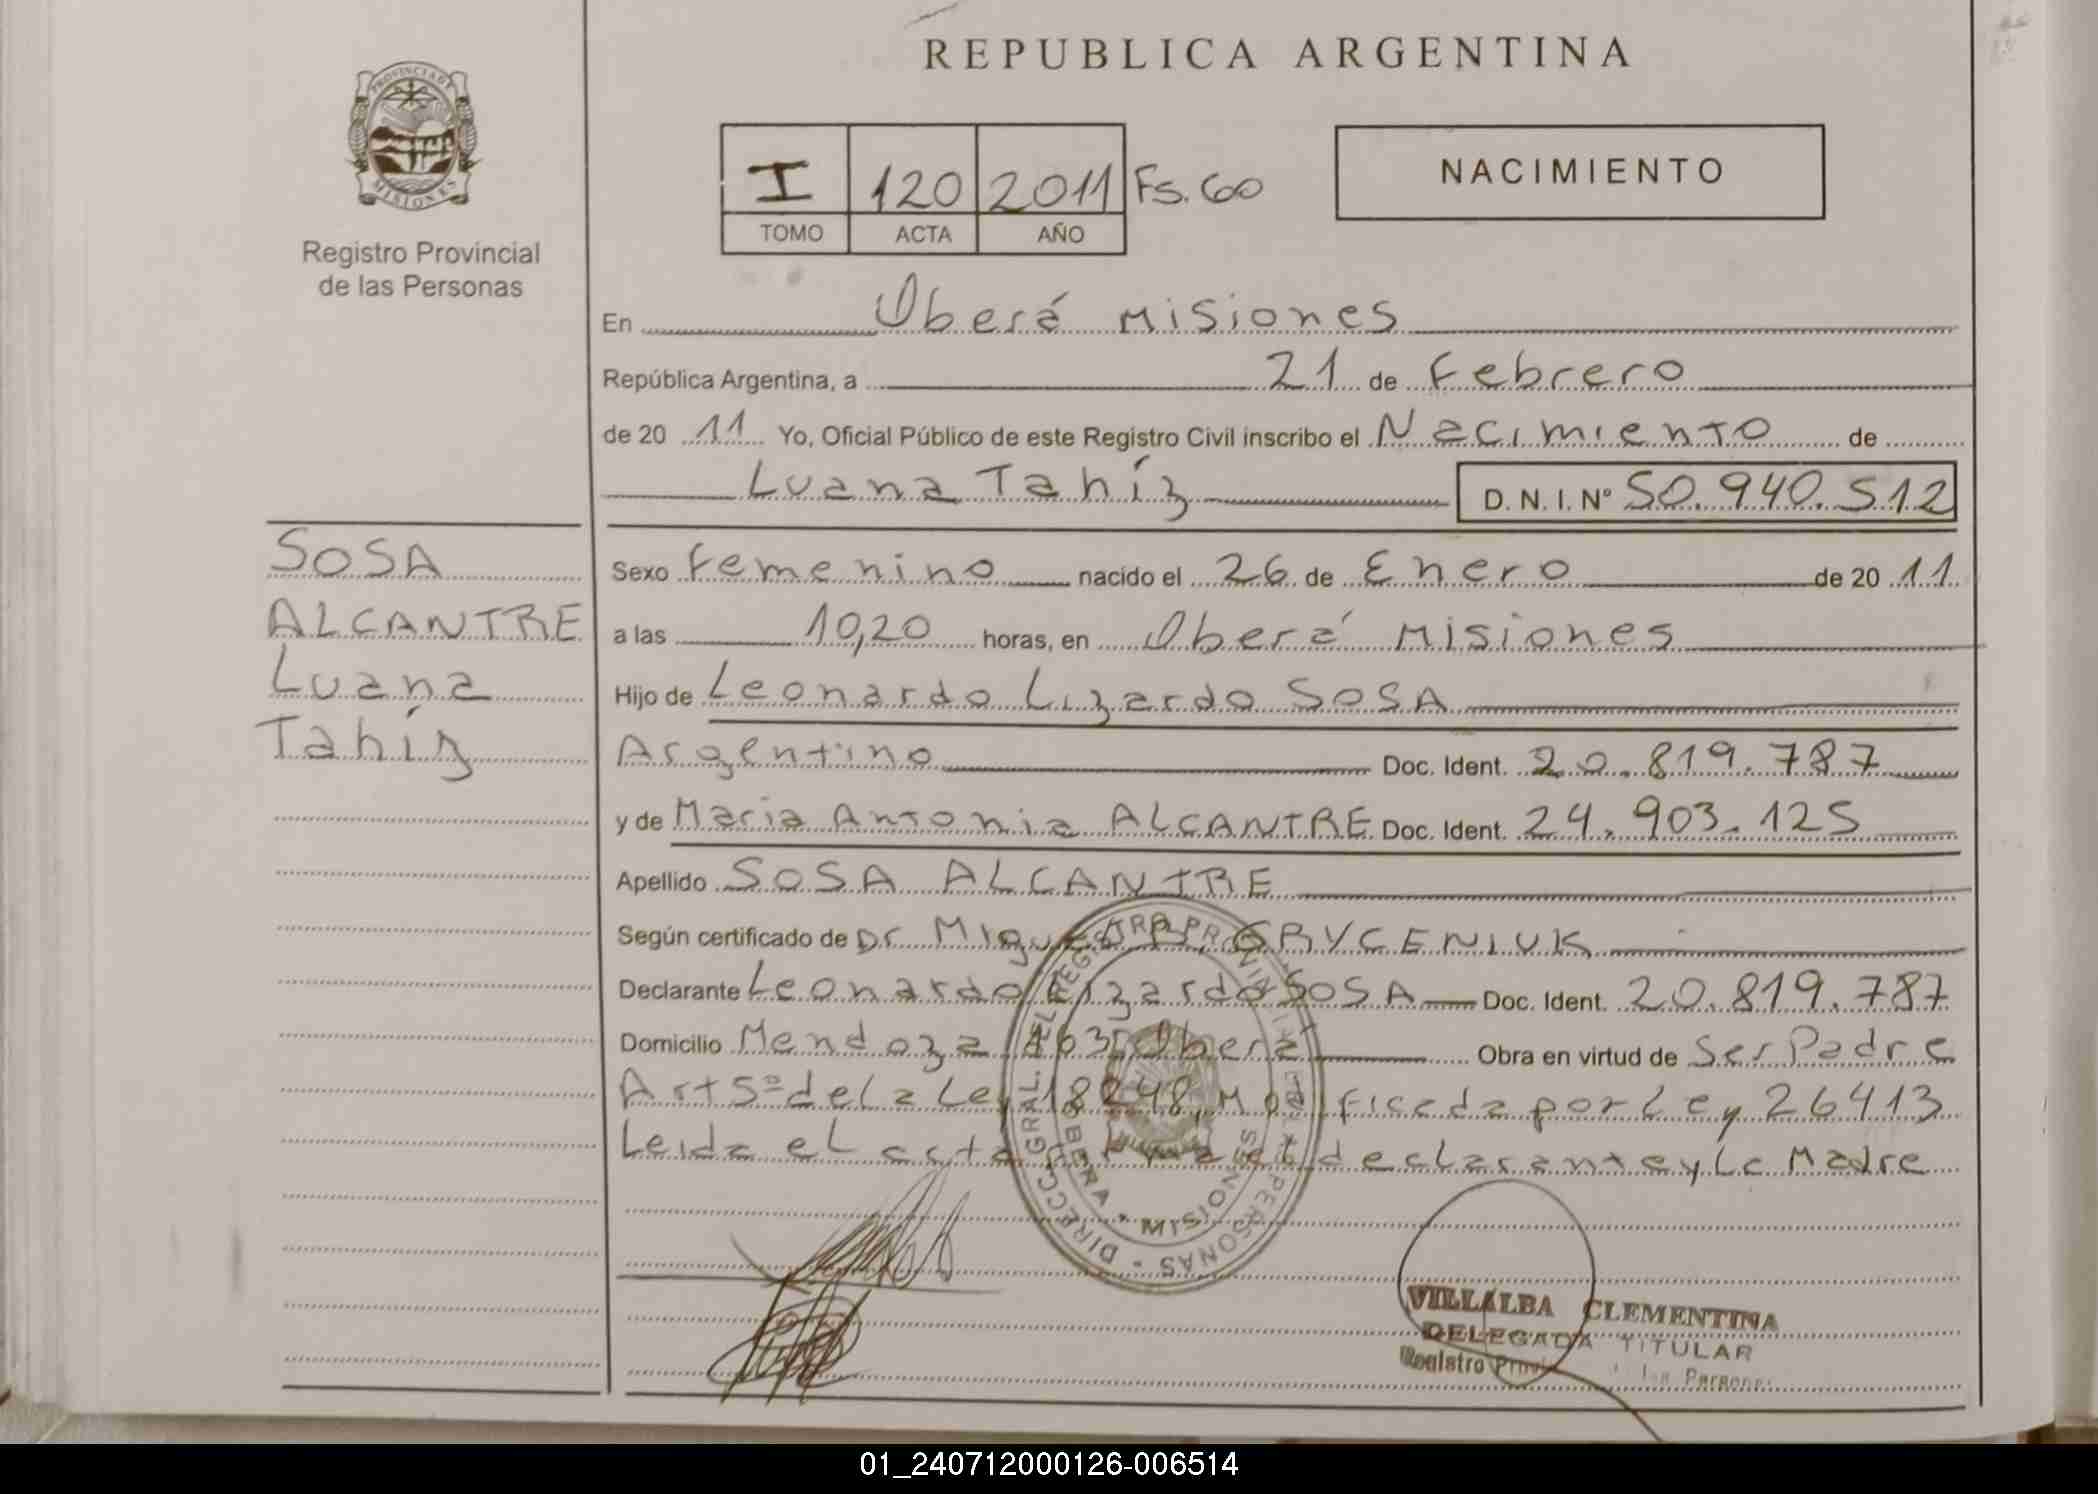 REPUBLICA ARGENTINA
PROVINCIA DE
MISIONES
Registro Provincial
de las Personas
I 120 2011 Fs. 60
TOMO ACTA AÑO
NACIMIENTO
En Oberá Misiones
República Argentina, a 21 de Febrero
de 20 11 Yo, Oficial Público de este Registro Civil inscribo el Nacimiento de
Luana Tahíz D. N. I. Nº 50.940.512
SOSA
ALCANTRE
Luana
Tahíz
Sexo Femenino nacido el 26 de Enero de 20 11
a las 10,20 horas, en Oberá Misiones
Hijo de Leonardo Lizardo SOSA
Argentino Doc. Ident. 20.819.787
y de Maria Antonia ALCANTRE Doc. Ident. 24.903.125
Apellido SOSA ALCANTRE
Según certificado de Dr Miguel GRYCENIUK
Declarante Leonardo Lizardo SOSA Doc. Ident. 20.819.787
Domicilio Mendoza Oberá Obra en virtud de Ser Padre
Art 5º de la Ley 18248, Modificada por Ley 26413
Leida el acta declarante y la Madre
DIRECC. GRAL. DEL REGISTRO PROVINCIAL PERSONAS
MISIONES
VILLALBA CLEMENTINA
DELEGADA TITULAR
Registro
01_240712000126-006514